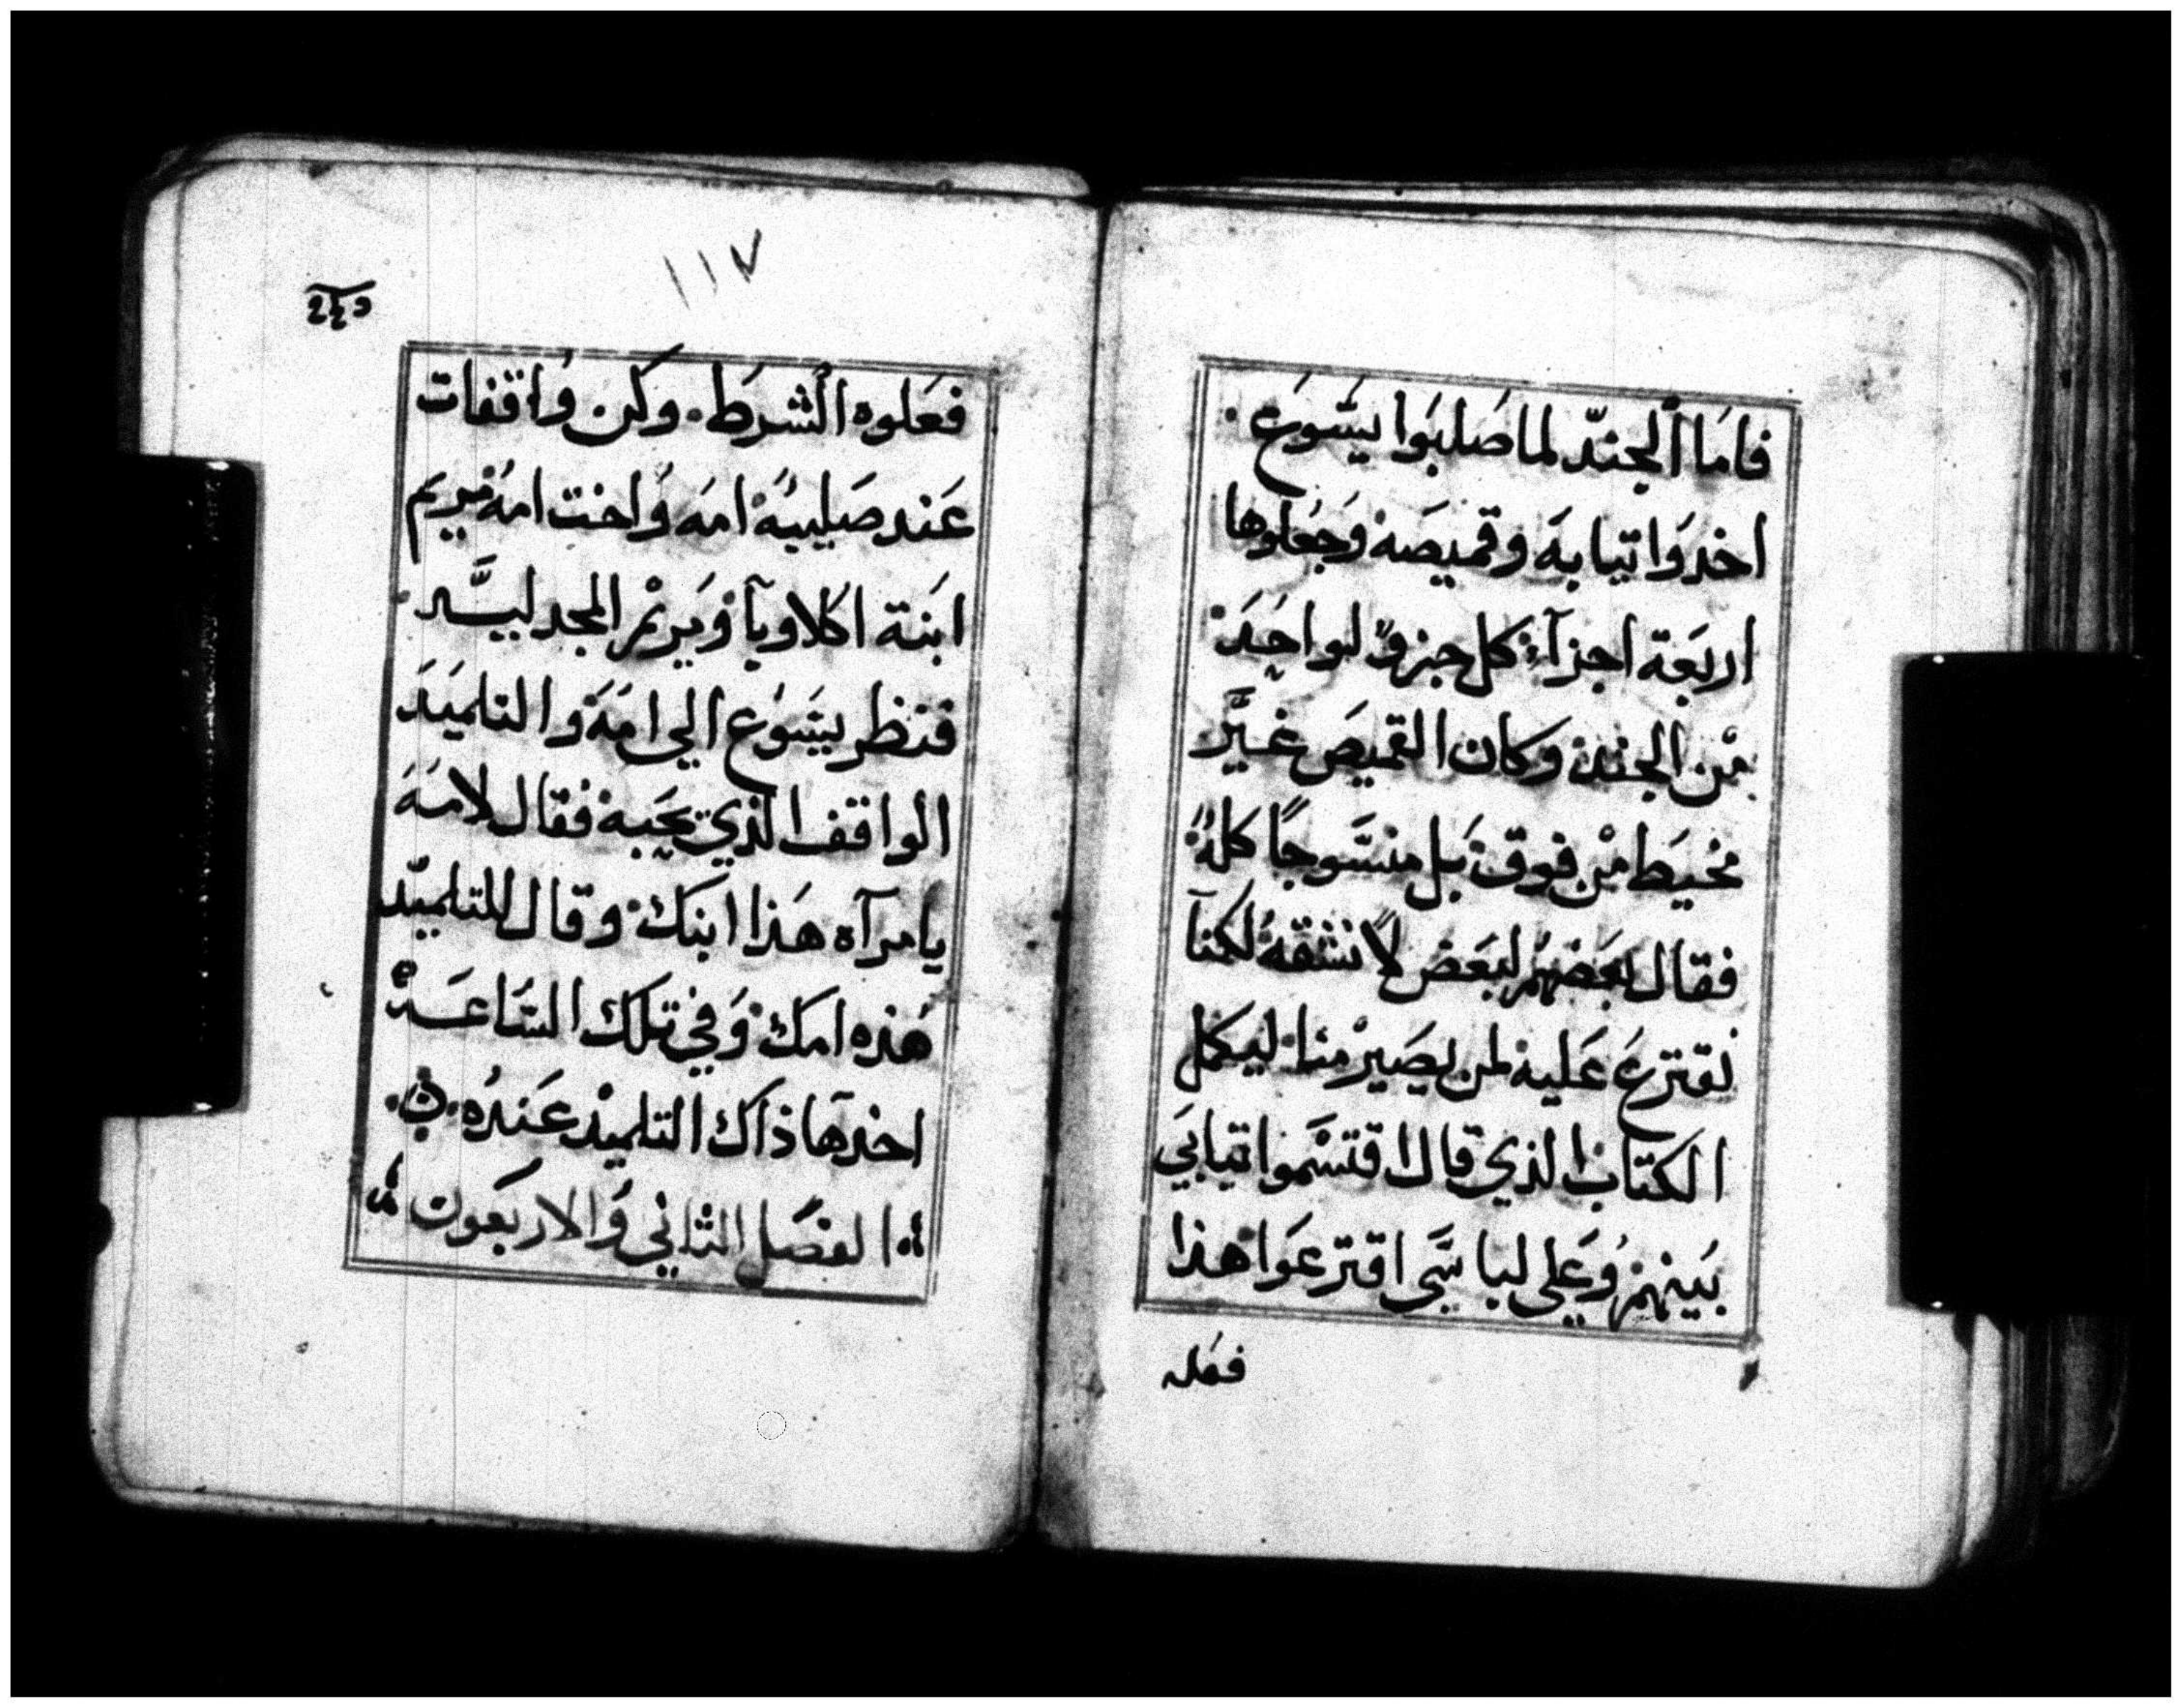 فامَا الجندّ لما صَلبَوا يسَوعَ
اخدوَا تيابهَ وقميصَهَ وَجعَلوها
اربعَة اجزآءٍ كل جزوٍ لواحدَ
مْن الجند وكان القميصَ غيَّر
مخيَط مْن فوق بَل منسَّوجًا كلهُ
فقال بعَضهُمْ لبعَض لا نشقهُ لكنآ
نقترعَ عَليه لمن يصَيرْ منا ليكمل
الكتابْ الذي قال اقتسَّموا تيابيَ
بيَنهمْ وَعَلي لباسَّي اقترعَوا هذا
فعَله
١١٧
فعَلوه الشرَط وكن وَاقفات
عَند صَليبهُ امهَ وَاخت امهُ مريم
ابنَة اكلاوبآ وَمَريمْ المجدليَّه
فنظر يسَوع الي امهَ والتلميَد
الواقف الذي يحَبه فقال لامهَ
يا مرآه هَذا ابنك وقال للتلميّد
هَذه امكَ وَفي تلك السَاعَة
اخدهَا ذاك التلميْد عَندُه
الفصَل الثاني وَالاربَعون